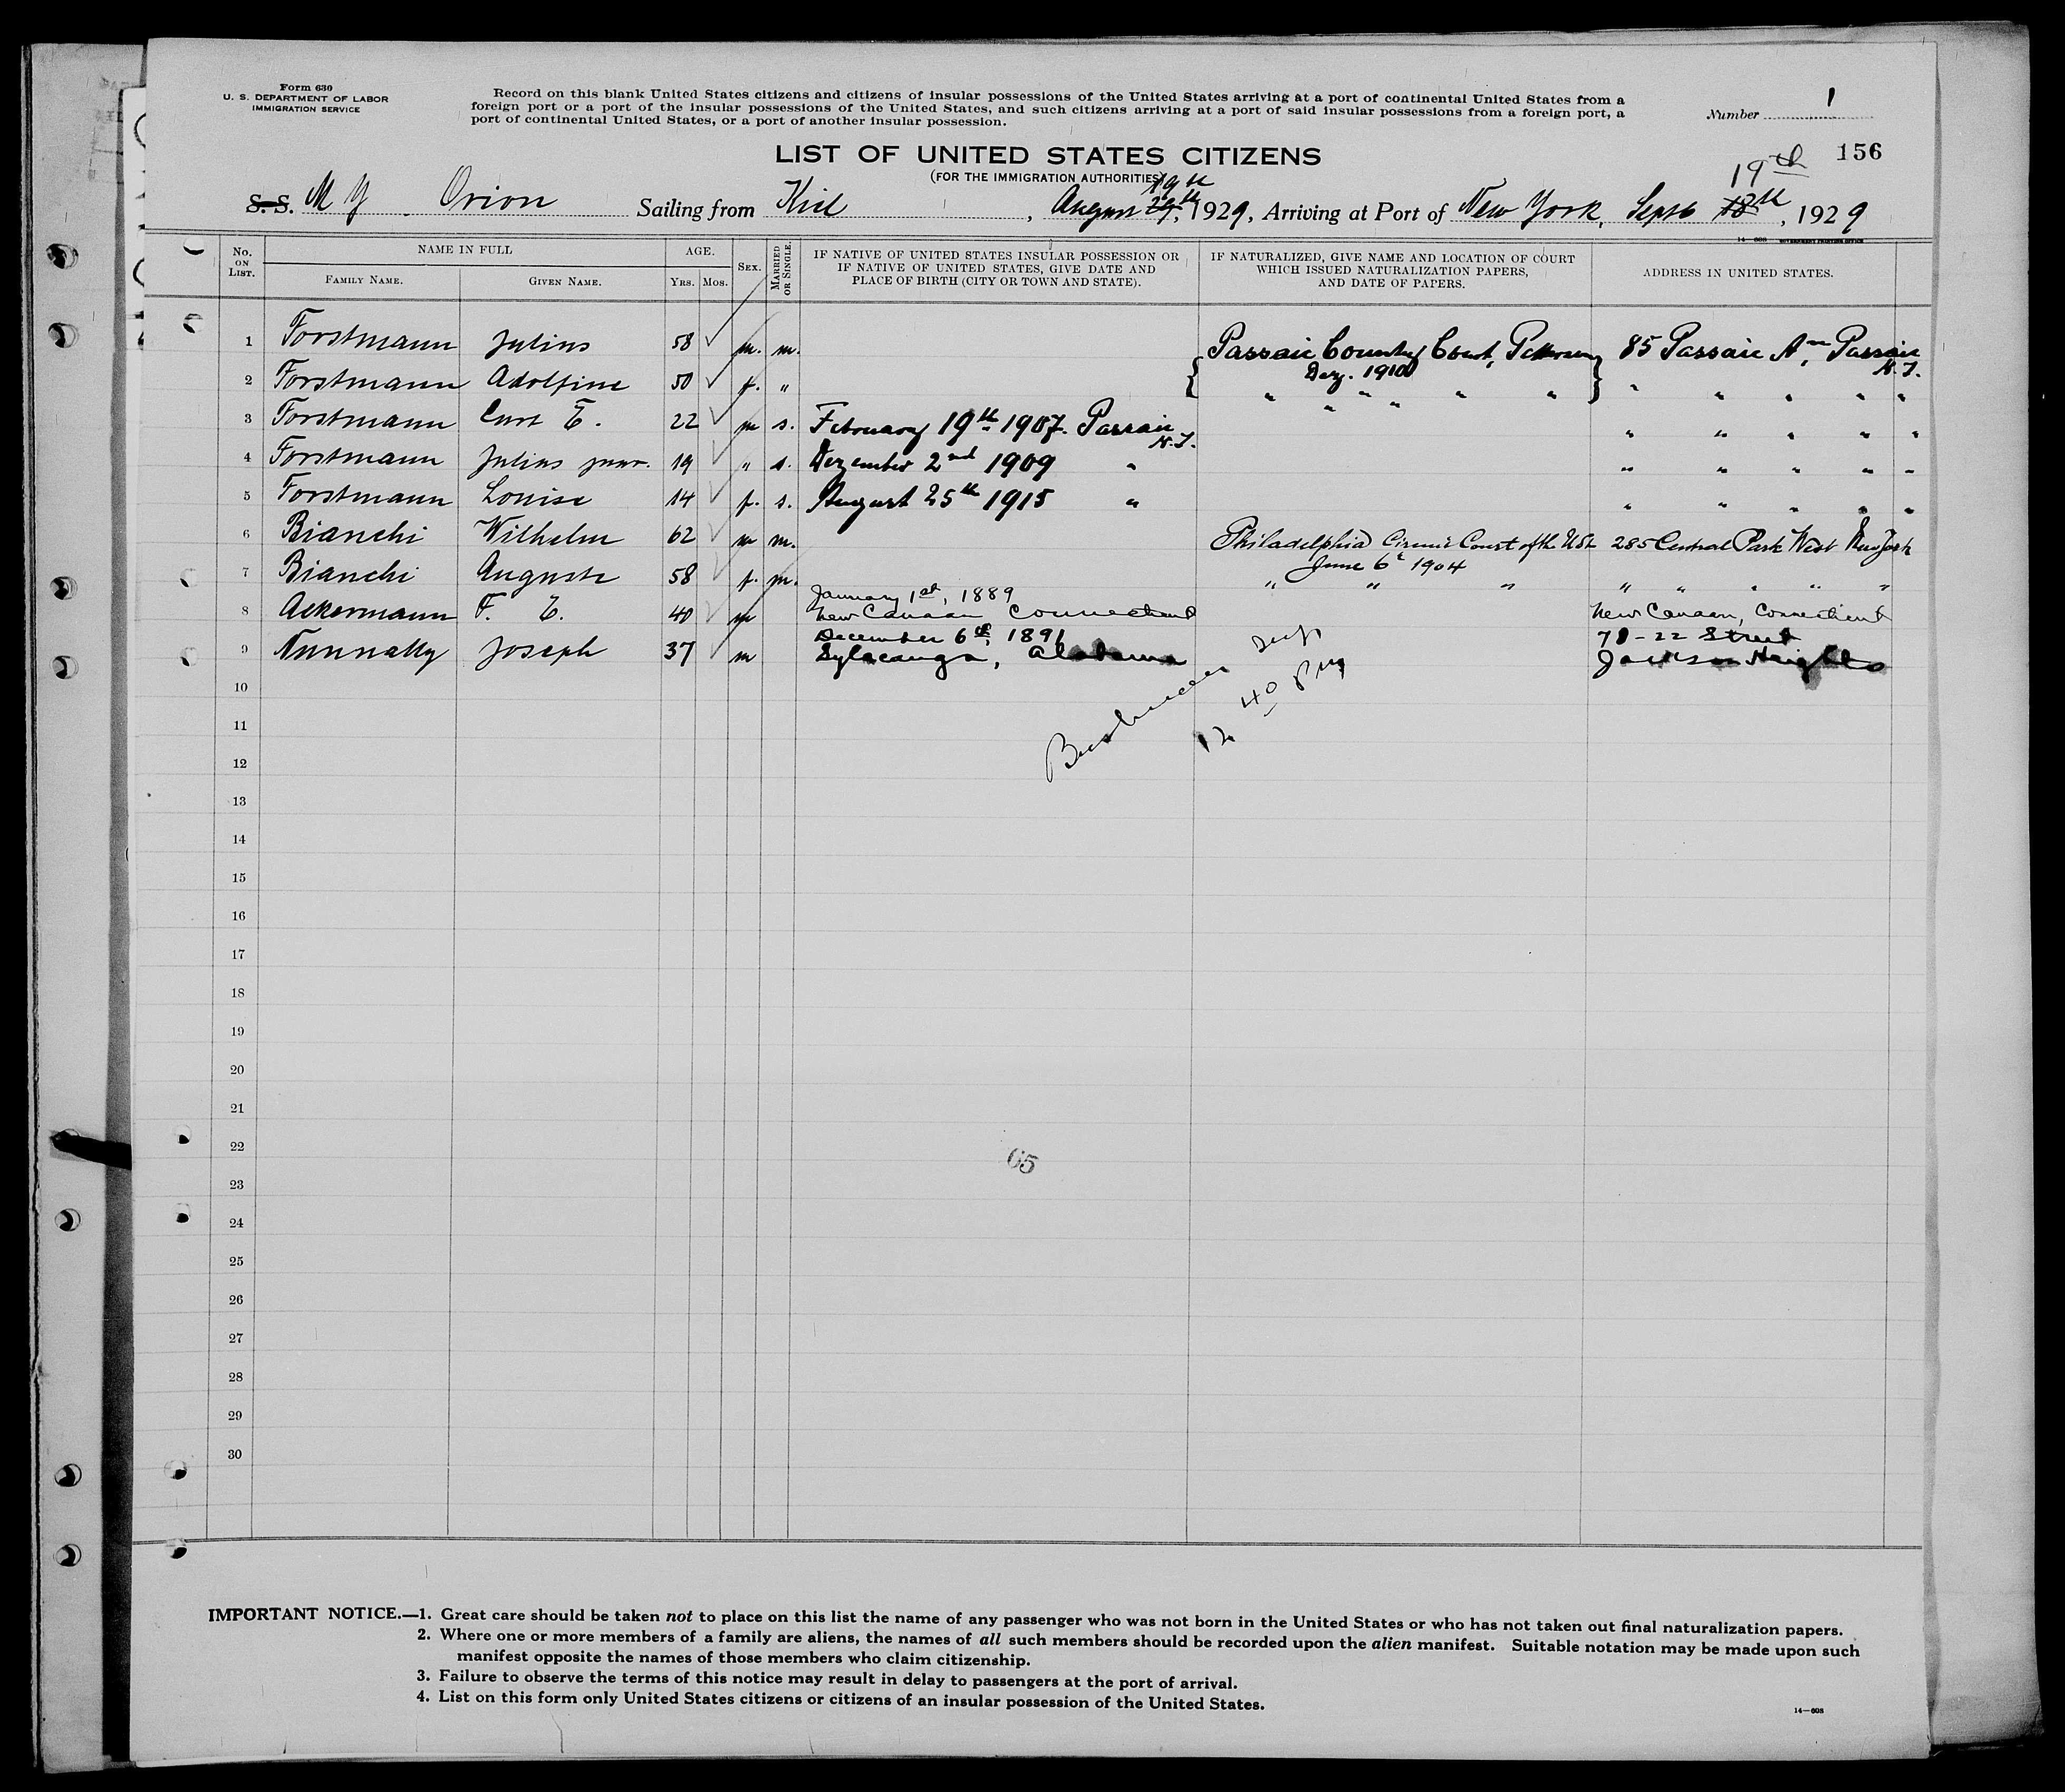 Form 630
U. S. DEPARTMENT OF LABOR
IMMIGRATION SERVICE
Record on this blank United States citizens and citizens of insular possessions of the United States arriving at a port of continental United States from a
foreign port or a port of the insular possessions of the United States, and such citizens arriving at a port of said insular possessions from a foreign port, a
port of continental United States, or a port of another insular possession.
Number 1
156
LIST OF UNITED STATES CITIZENS
(FOR THE IMMIGRATION AUTHORITIES)
19th 19th
S. S. M Y Orion Sailing from Kiel, August 29th, 1929, Arriving at Port of New York, Septb 18th, 1929
14—608 GOVERNMENT PRINTING OFFICE
No. ON LIST. NAME IN FULL FAMILY NAME. GIVEN NAME. AGE. YRS. MOS. SEX. MARRIED OR SINGLE. IF NATIVE OF UNITED STATES INSULAR POSSESSION OR IF NATIVE OF UNITED STATES, GIVE DATE AND PLACE OF BIRTH (CITY OR TOWN AND STATE). IF NATURALIZED, GIVE NAME AND LOCATION OF COURT WHICH ISSUED NATURALIZATION PAPERS, AND DATE OF PAPERS. ADDRESS IN UNITED STATES.
1 Forstmann Julius 58 m. m. Passaic County Court, Patterson 85 Passaic Ave, Passaic
Dez. 1910 N.J.
2 Forstmann Adolfine 50 f. " " " " " " " " " " "
3 Forstmann Curt E. 22 m s. February 19th 1907. Passaic N.J. " " " " "
4 Forstmann Julius junr. 19 " s. Dezember 2nd 1909 " " " " " "
5 Forstmann Louise 14 f. s. August 25th 1915 " " " " " "
6 Bianchi Wilhelm 62 m m. Philadelphia Circuit Court of the USt 285 Central Park West New York
June 6th 1904
7 Bianchi Auguste 58 f. m. " " " " " " " "
January 1st, 1889
8 Ackermann F. E. 40 m New Canaan Connecticut New Canaan, Connecticut
December 6th, 1891 78-22 Street
9 Nunnally Joseph 37 m Sylacauga, Alabama Jackson Heights
10
12 40 PM
11
12
13
14
15
16
17
18
19
20
21
22
65
23
24
25
26
27
28
29
30
IMPORTANT NOTICE.—1. Great care should be taken not to place on this list the name of any passenger who was not born in the United States or who has not taken out final naturalization papers.
2. Where one or more members of a family are aliens, the names of all such members should be recorded upon the alien manifest. Suitable notation may be made upon such
manifest opposite the names of those members who claim citizenship.
3. Failure to observe the terms of this notice may result in delay to passengers at the port of arrival.
4. List on this form only United States citizens or citizens of an insular possession of the United States.
14—608